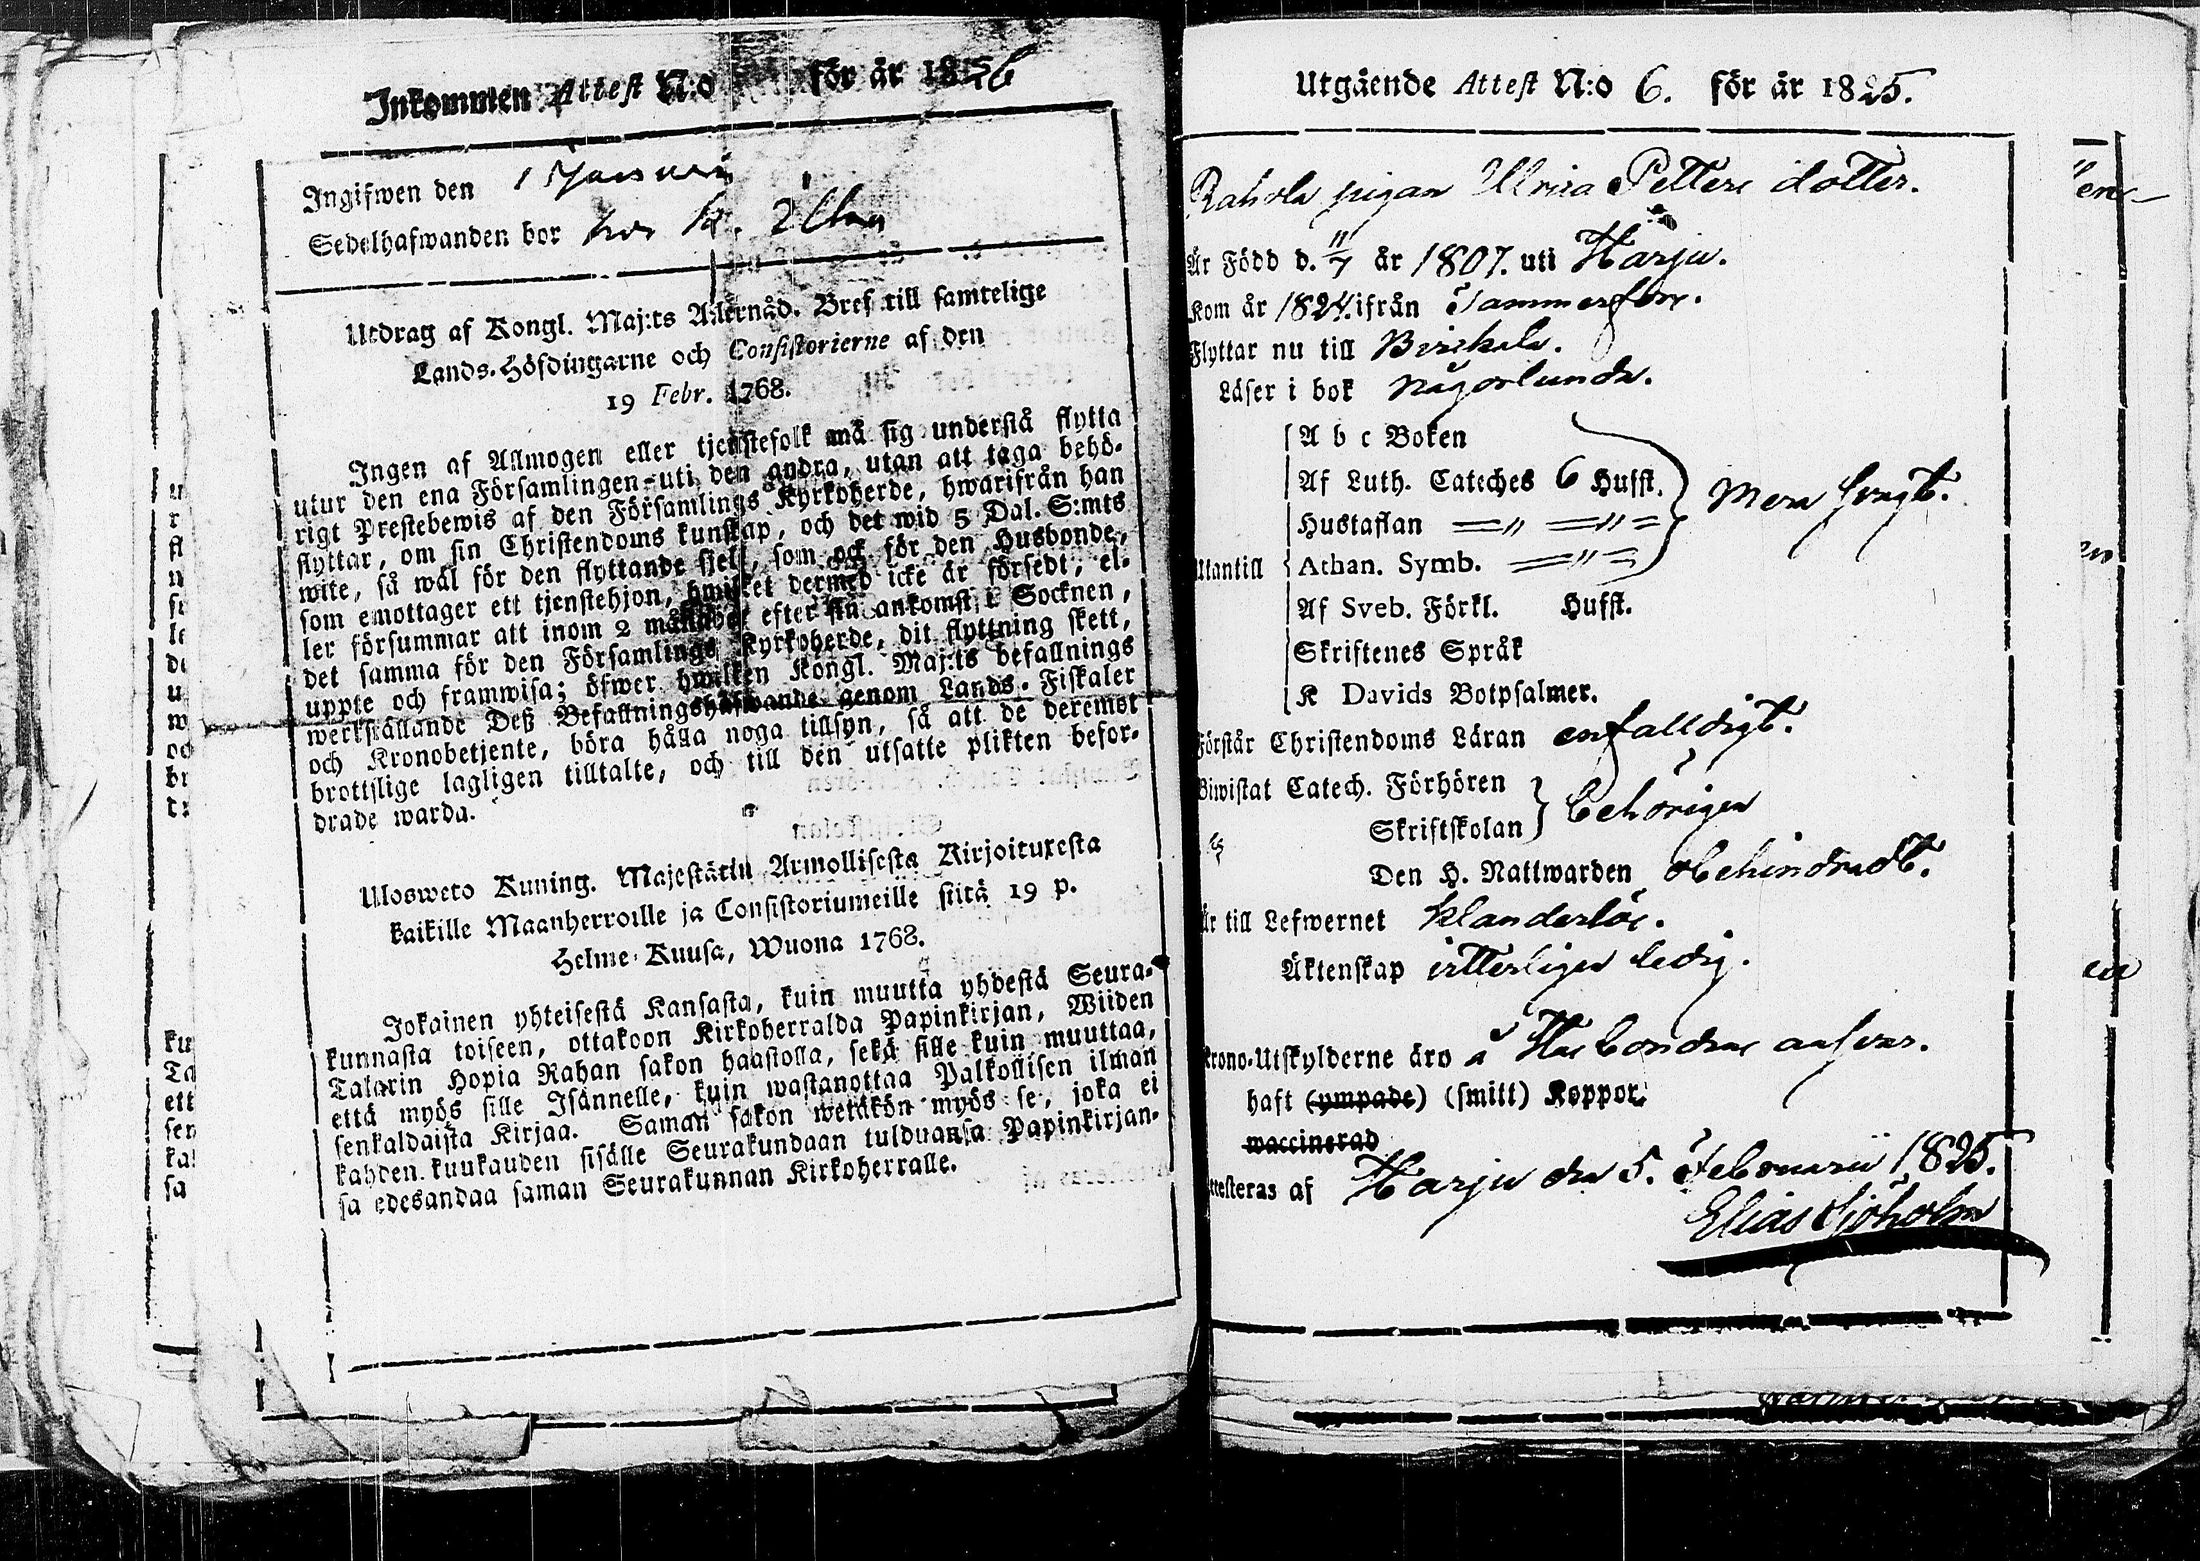 Inkommen Attest N:o för år 1826
Ingifwen den 1 Januari
Sedelhafwanden bor hos
Utdrag af Kongl. Maj:ts Allernåd. Bref till samtelige
Lands-Höfdingarne och Consistorierne af den
19 Febr. 1768.
Ingen af Allmogen eller tjenstefolk må sig understå flytta
utur den ena Församlingen uti den andra, utan att taga behö-
rigt Prestebewis af den Församlings Kyrkoherde, hwarifrån han
flyttar, om sin Christendoms kunskap, och det wid 5 Dal. S:mts
wite, så wäl för den flyttande sjelf, som ock för den Husbonde,
som emottager ett tjenstehjon, hwilket dermed icke är försedt; el-
ler försummar att inom 2 månader efter sin ankomst i Socknen,
det samma för den Församlings Kyrkoherde, dit flyttning skett,
uppte och framwisa; öfwer hwilken Kongl. Maj:ts befallnings
werkställande Deß Befallningshafwande genom Lands-Fiskaler
och Kronobetjente, böra hålla noga tillsyn, så att de deremot
brottslige lagligen tilltalte, och till den utsatte plikten befor-
drade warda.
Ulosweto Kuning. Majestätin Armollisesta Kirjoituxesta
kaikille Maanherroille ja Consistoriumeille siitä 19 p.
Helme-Kuusa, Wuona 1768.
Jokainen yhteisestä Kansasta, kuin muutta yhdestä Seura-
kunnasta toiseen, ottakoon Kirkoherralda Papinkirjan, Wiiden
Talarin Hopia Rahan sakon haastolla, sekä sille kuin muuttaa,
että myös sille Isännelle, kuin wastanottaa Palkollisen ilman
senkaldaista Kirjaa. Saman sakon wetäkön myös se, joka ei
kahden kuukauden sisälle Seurakundaan tulduansa Papinkirjan-
sa edesandaa saman Seurakunnan Kirkoherralle.
Utgående Attest N:o 6. för år 1825.
Rahola pigan Ulrica Petters dotter.
Är Född d. 11/7 år 1807. uti Harju.
Kom år 1824. ifrån Tammerfors.
Flyttar nu till Birkala.
Läser i bok någorlunda.
A b c Boken
Af Luth. Cateches 6 Hufst.
Hustaflan =" ="= mera svagt.
Utantill Athan. Symb. ="=
Af Sveb. Förkl. Hufst.
Skriftenes Språk
K Davids Botpsalmer.
Förstår Christendoms Läran enfalldigt.
Biwistat Catech. Förhören
Skriftskolan behörigen
Den H. Nattwarden obehindradt.
Är till Lefwernet klanderlös.
Äktenskap ledig.
Krono-Utskylderne äro å Husbondens answar.
haft (ympade) (smitt) Koppor.
waccinerad
Attesteras af Harju den 5. Februarii 1825.
Elias Sjöholm